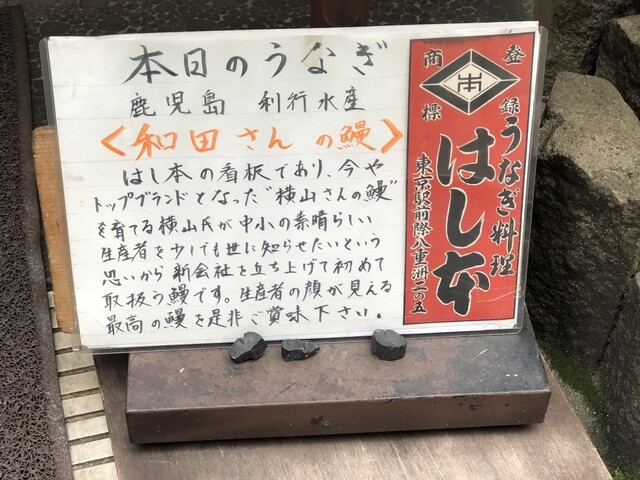 本日のうなぎ
鹿児島 利行水産
<和田さんの鰻>
はし本の看板であり、今や
トップブランドとなった"横山さんの鰻"
を育てる横山氏が中小の素晴らしい
生産者を少しでも世に知らせたいという
思いから新会社を立ち上げて初めて
取扱う鰻です。生産者の顔が見える
最高の鰻を是非ご賞味下さい。
登録
商標
本
うなぎ料理
はし本
東京駅前際八重洲二の五